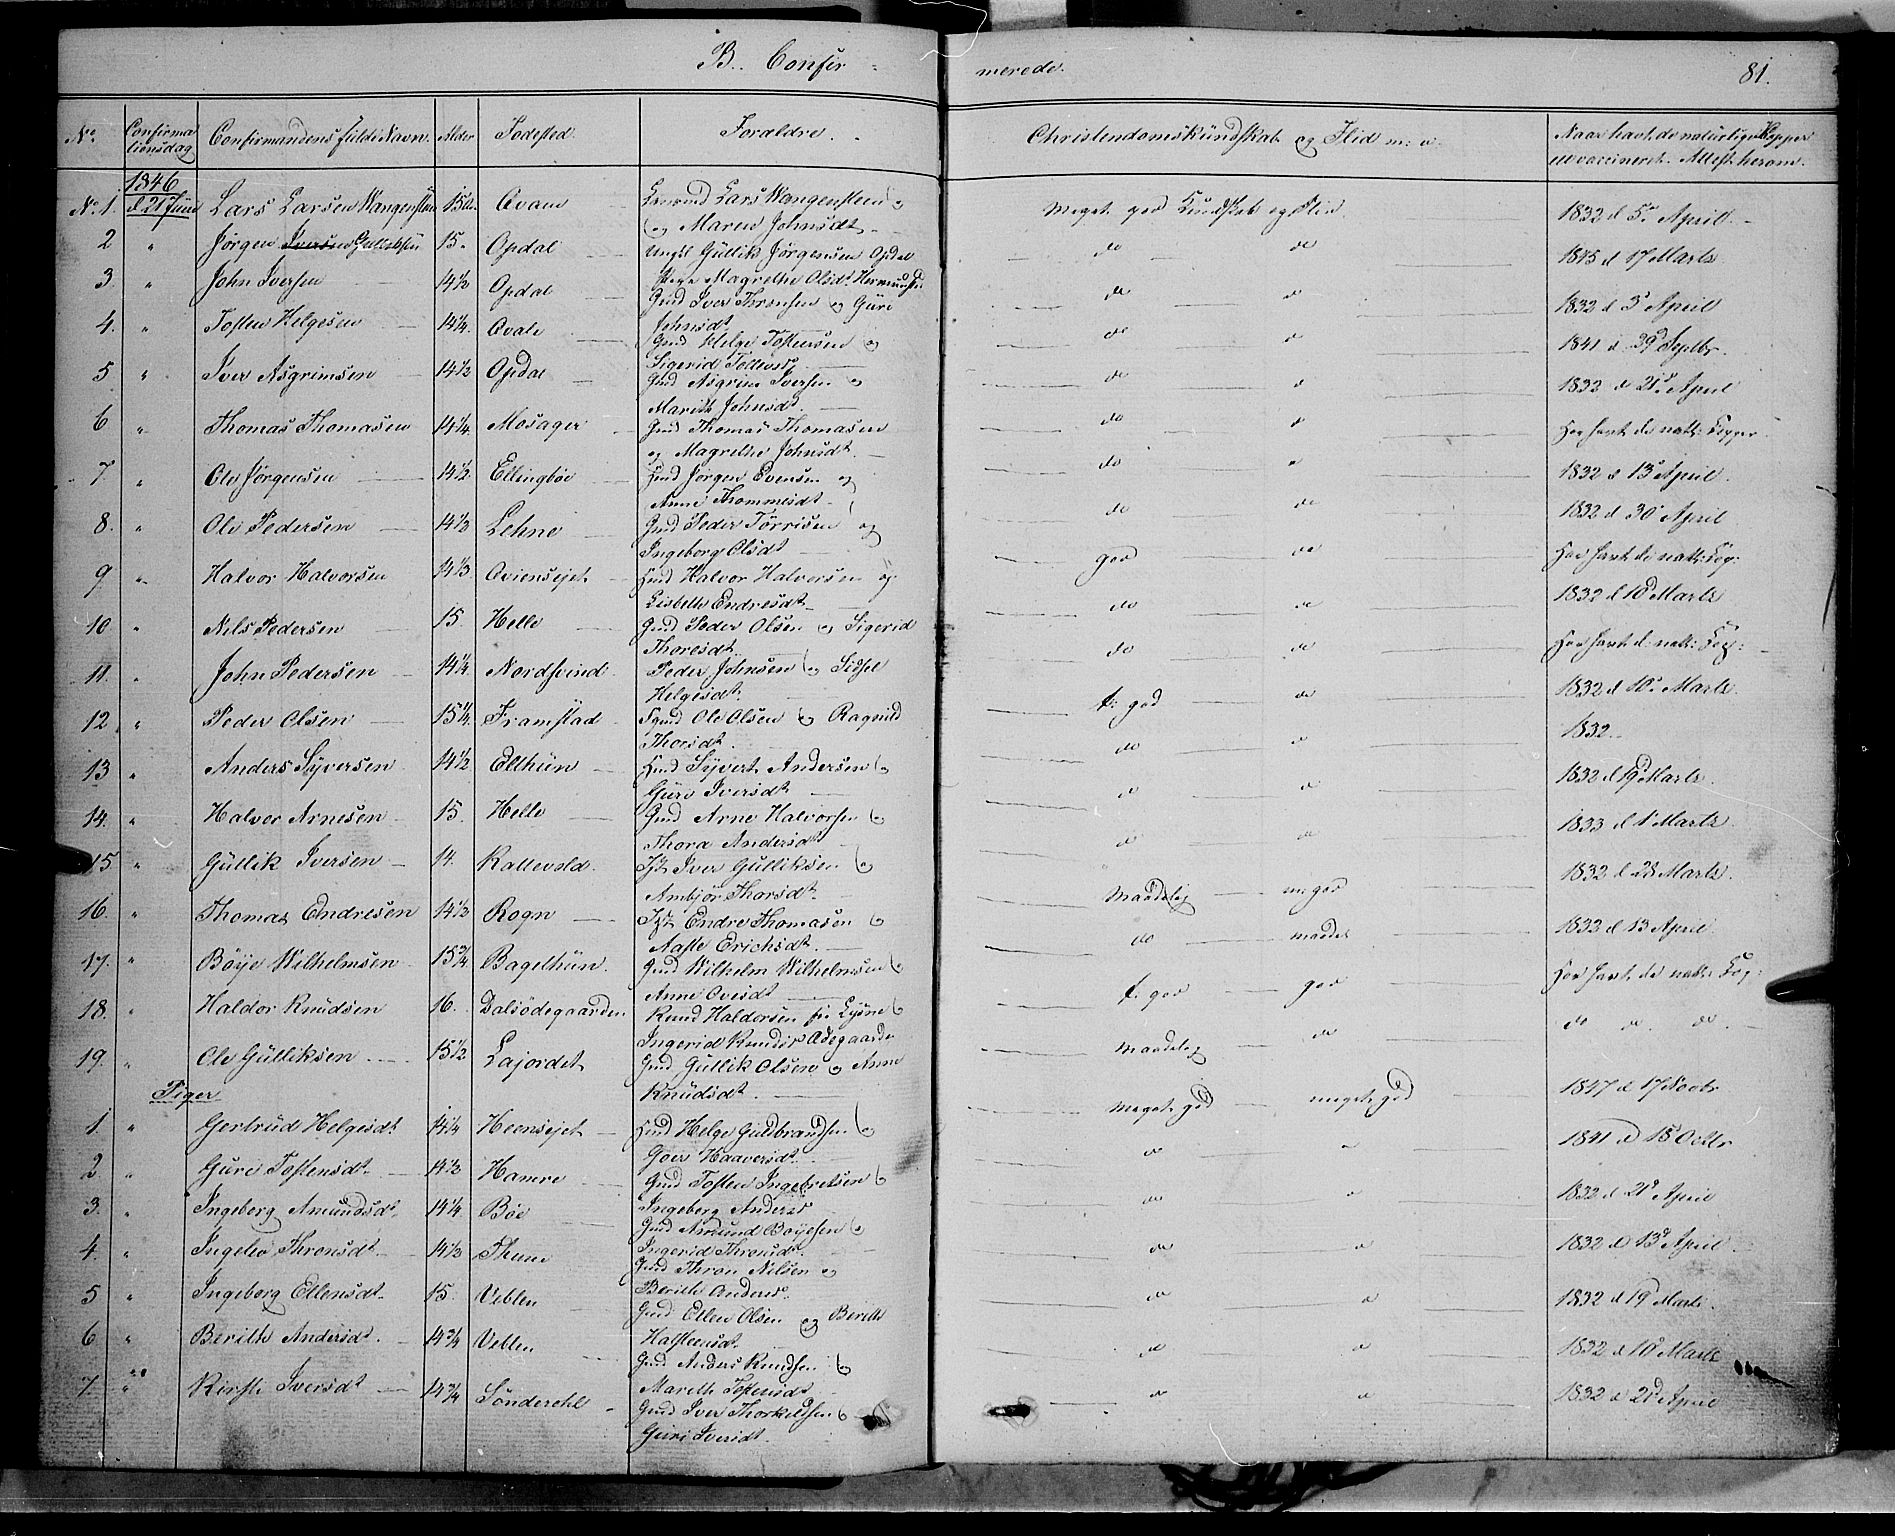 B. Confir-
merede.
81.
No
Confirma
tionsdag
Confirmandens fulde Navn.
Alder
Fødested.
Forældre.
Christendomskundskab og Flid m: v.
Naar havt de naturlige Kopper
el vaccineret. Attest herom.
1846
No 1. d 21 Juni Lars Larsen Wangensteen 15 Qvam Lars Wangensteen
og Maren Johnsdt. Meget god Kundskab og Flid 1832 d 5 April
2 " Jørgen Iversen Gulliksen 15 Opdal Ungk Gullik Jørgensen Opdal
Magrethe Olsdt. do do 1845 d 17 Marts
3. " John Iversen 14 1/2 Opdal Gmd Iver Thronsen og Guri
Johnsdt do 1832 d 3 April
4. " Tosten Helgesen 14 1/4 Gmd Helge Tostensen og
Sigerid do 1841 d 29 Septbr.
5 " Iver Asgrimsen 14 1/2 Opdal Gmd Asgrim Iversen og
Marith Johnsdt. do 1832 d 21 April
6 " Thomas Thomasen 14 1/4 Mosager Gmd Thomas Thomasen
og Magrethe Johnsdt. do Har havt de natl: Kopper
7 " Ole Jørgensen 14 1/2 Ellingbøe Hmd Jørgen Evensen og
Anne Thommesdt do 1832 d 13 April
8. " Ole Pedersen 14 1/2 Lehne Gmd Peder Tørrisen og
Ingeborg Olsdt do do 1832 d 30 April
9 " Halvor Halvorsen 14 1/3 Qviensejet Hmd Halvor Halvorsen og
Lisbeth Endresdt god do Har havt de natl: Kop:
10 " Nils Pedersen 15. Helle Gmd Peder Olsen og Sigerid
Thoresdt. do do 1832 d 10 Marts
11. " John Pedersen 14 1/4 Nordsvind Peder Johnsen og Sidsel
Helgesdt do do Har havt de natl: Kop:
12 " Peder Olsen 15 1/4 Framstad Ole Olsen og Ragnild
Thorsdt. t: god do 1832 d 10 Marts
13 " Anders Syversen 14 1/2 Elthun Hmd Syvert Andersen og
Guri Iversdt do 1832.
14. " Halvor Arnesen 15. Helle Gmd Arne Halvorsen og
Thora Andersdt 1832 d 19 Marts
15 " Gullik Iversen 14. Kattevold. Iver Gulliksen og
Ambjør Thorsdt. 1833 d 1 Marts
16. " Thomas Endresen 14 1/2 Rogn Endre Thomasen og
Aaste Erichsdt. Maadelig m: god 1832 d 28 Marts
17. " Bøye Wilhelmsen 15 3/4 Bagethun. Gmd Wilhelm Wilhelmsen og
Anne Ovesdt do maadel 1832 d 13 April
18. " Haldor Knudsen 16. Dalsødegaarden Knud Haldorsen fra Lysne og
Ingerid Knudsdt Ødegaarden t. god god Har havt de natl: Kop:
19. " Ole Gulliksen 15 1/2 Lajordet Gmd Gullik Olsen og Anne
Knudsdt. Maadelig do do do. do.
Piger
1. " Gertrud Helgesdt. 14 1/4 Heensejet Hmd Helge Guldbrandsen og
Goer Haaversdt. Meget god meget god 1847 d 17 Novbr
2 " Guri Tostensdt. 14 1/2 Hamre Gmd Tosten Ingebretsen
Ingeborg Andersd do 1841 d 15 Octbr
3. " Ingeborg Amundsdt. 14 1/4 Bøe Gmd Amund Bøyesen og
Ingerid Thronsdt. do 1832 d 21 April
4. " Ingebor Thronsdt. 14 1/2 Thune Gmd Thron Nilsen og
Berith Andersd. do 1832 d 13 April
5 " Ingeborg Ellensdt. 15. Veblen Gmd Ellen Olsen og Berith
Halsteensdt. do 1832 d 19 Marts.
6 " Berith Andersdt. 14 3/4 Veblen Gmd Anders Knudsen og
Marith Tostensdt do 1832 d 10 Marts
7 " Kirsti Iversdt 14 3/4 Sønderehl Gmd Iver Thorkildsen og
Guri Iversdt. do 1832 d 21 April